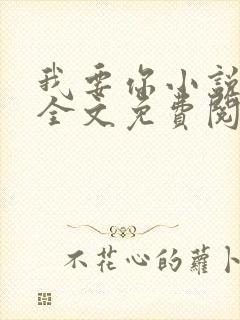 我要你小說
全文免費閱
不花心的蘿卜